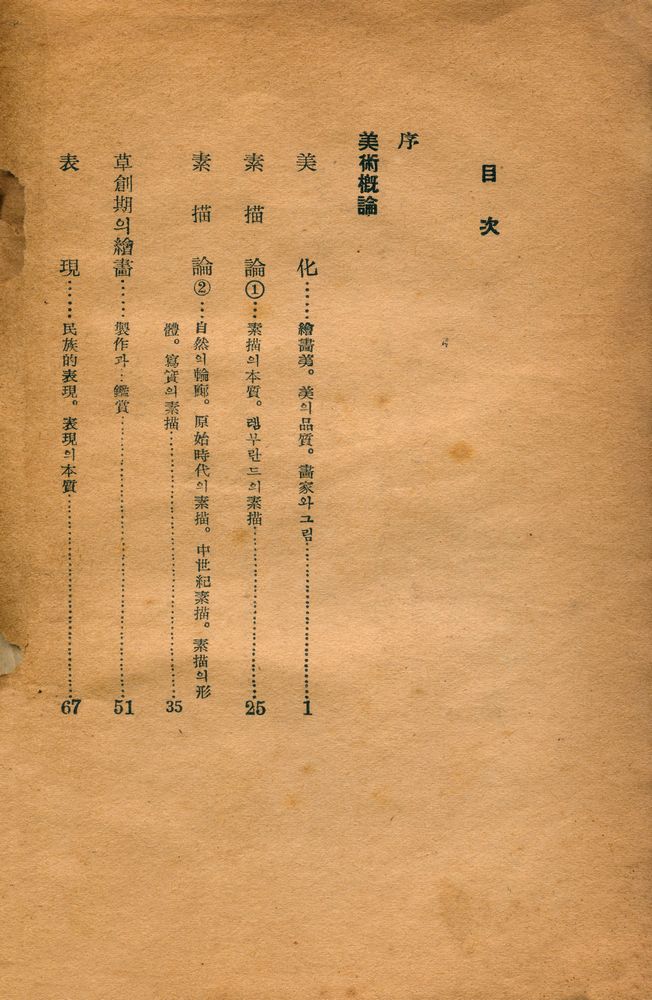 目次
序
美術槪論
美化……繪畵美。美의品質。畵家와그림……1
素描論①…素描의本質。렘부란드의素描……25
素描論②…自然의輪廓。原始時代의素描。中世紀素描。素描의形
體。寫實의素描……35
草創期의繪畵……製作과鑑賞……51
表現……民族的表現。表現의本質……67